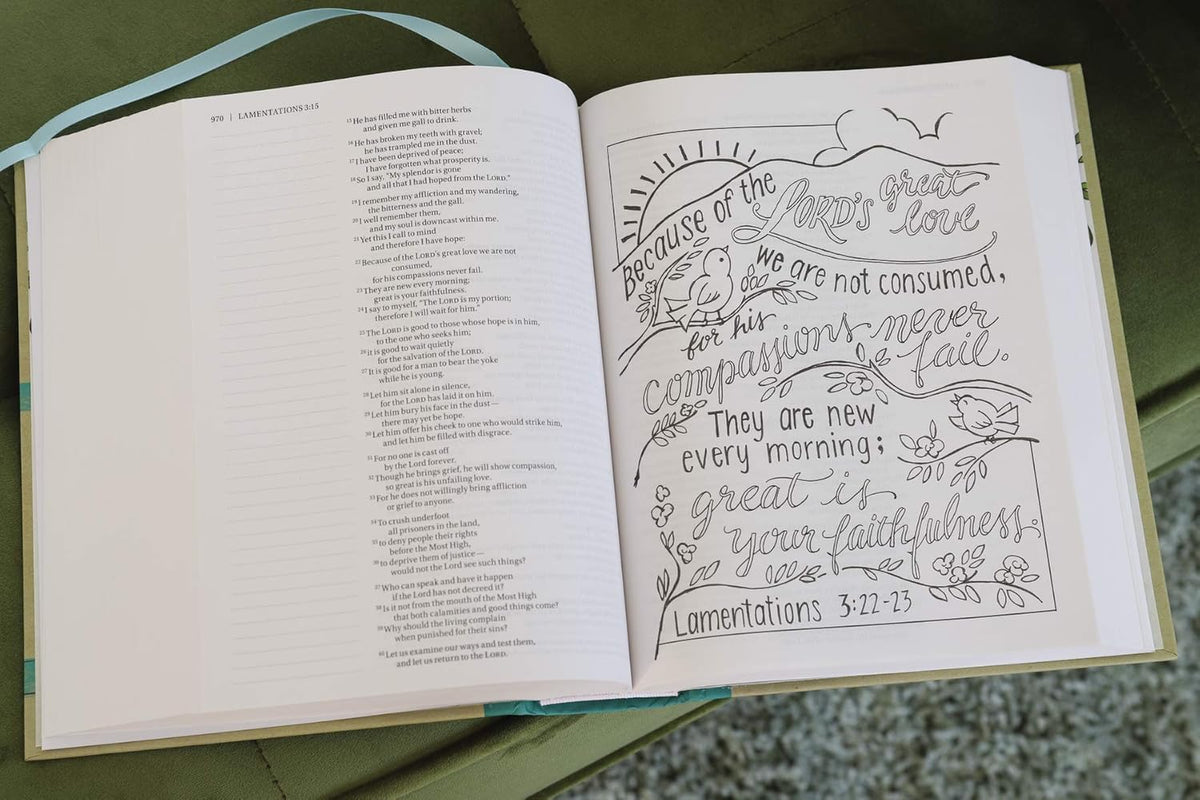 970 | LAMENTATIONS 3:15
15 He has filled me with bitter herbs
and given me gall to drink.
16 He has broken my teeth with gravel;
he has trampled me in the dust.
17 I have been deprived of peace;
I have forgotten what prosperity is.
18 So I say, "My splendor is gone
and all that I had hoped from the LORD."
19 I remember my affliction and my wandering,
the bitterness and the gall.
20 I well remember them,
and my soul is downcast within me.
21 Yet this I call to mind
and therefore I have hope:
22 Because of the LORD's great love we are not
consumed,
for his compassions never fail.
23 They are new every morning;
great is your faithfulness.
24 I say to myself, "The LORD is my portion;
therefore I will wait for him."
25 The LORD is good to those whose hope is in him,
to the one who seeks him;
26 it is good to wait quietly
for the salvation of the LORD.
27 It is good for a man to bear the yoke
while he is young.
28 Let him sit alone in silence,
for the LORD has laid it on him.
29 Let him bury his face in the dust—
there may yet be hope.
30 Let him offer his cheek to one who would strike him,
and let him be filled with disgrace.
31 For no one is cast off
by the Lord forever.
32 Though he brings grief, he will show compassion,
so great is his unfailing love.
33 For he does not willingly bring affliction
or grief to anyone.
34 To crush underfoot
all prisoners in the land,
35 to deny people their rights
before the Most High,
36 to deprive them of justice—
would not the Lord see such things?
37 Who can speak and have it happen
if the Lord has not decreed it?
38 Is it not from the mouth of the Most High
that both calamities and good things come?
39 Why should the living complain
when punished for their sins?
40 Let us examine our ways and test them,
and let us return to the LORD.
Because of the LORD'S great
love
we are not consumed,
for his
compassions never
fail.
They are new
every morning;
great is
your faithfulness.
Lamentations 3:22-23